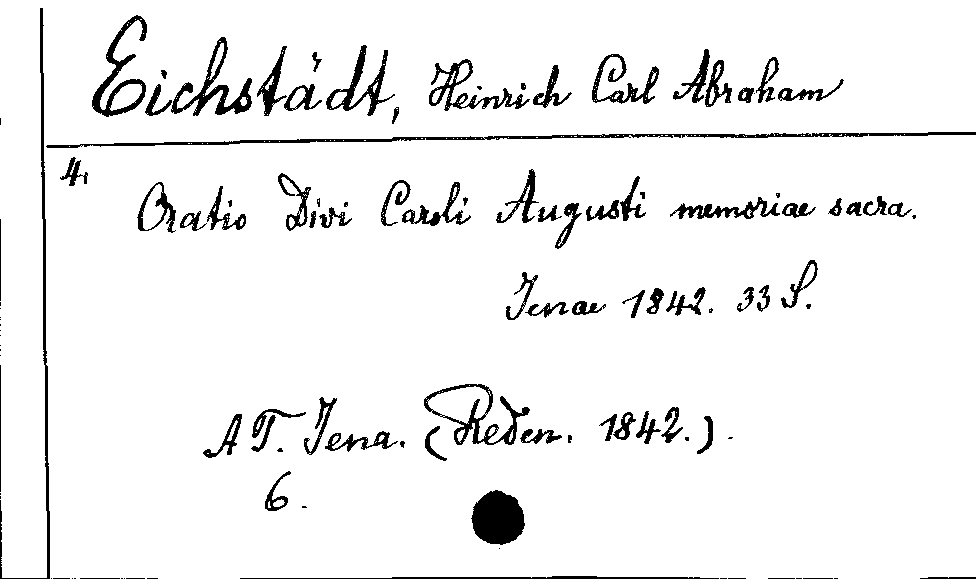 Eichstädt, Heinrich Carl Abraham
4.
Oratio Divi Caroli Augusti memoriae sacra.
Jenae 1842. 33 S.
AT. Jena. (Reden. 1842.).
6.